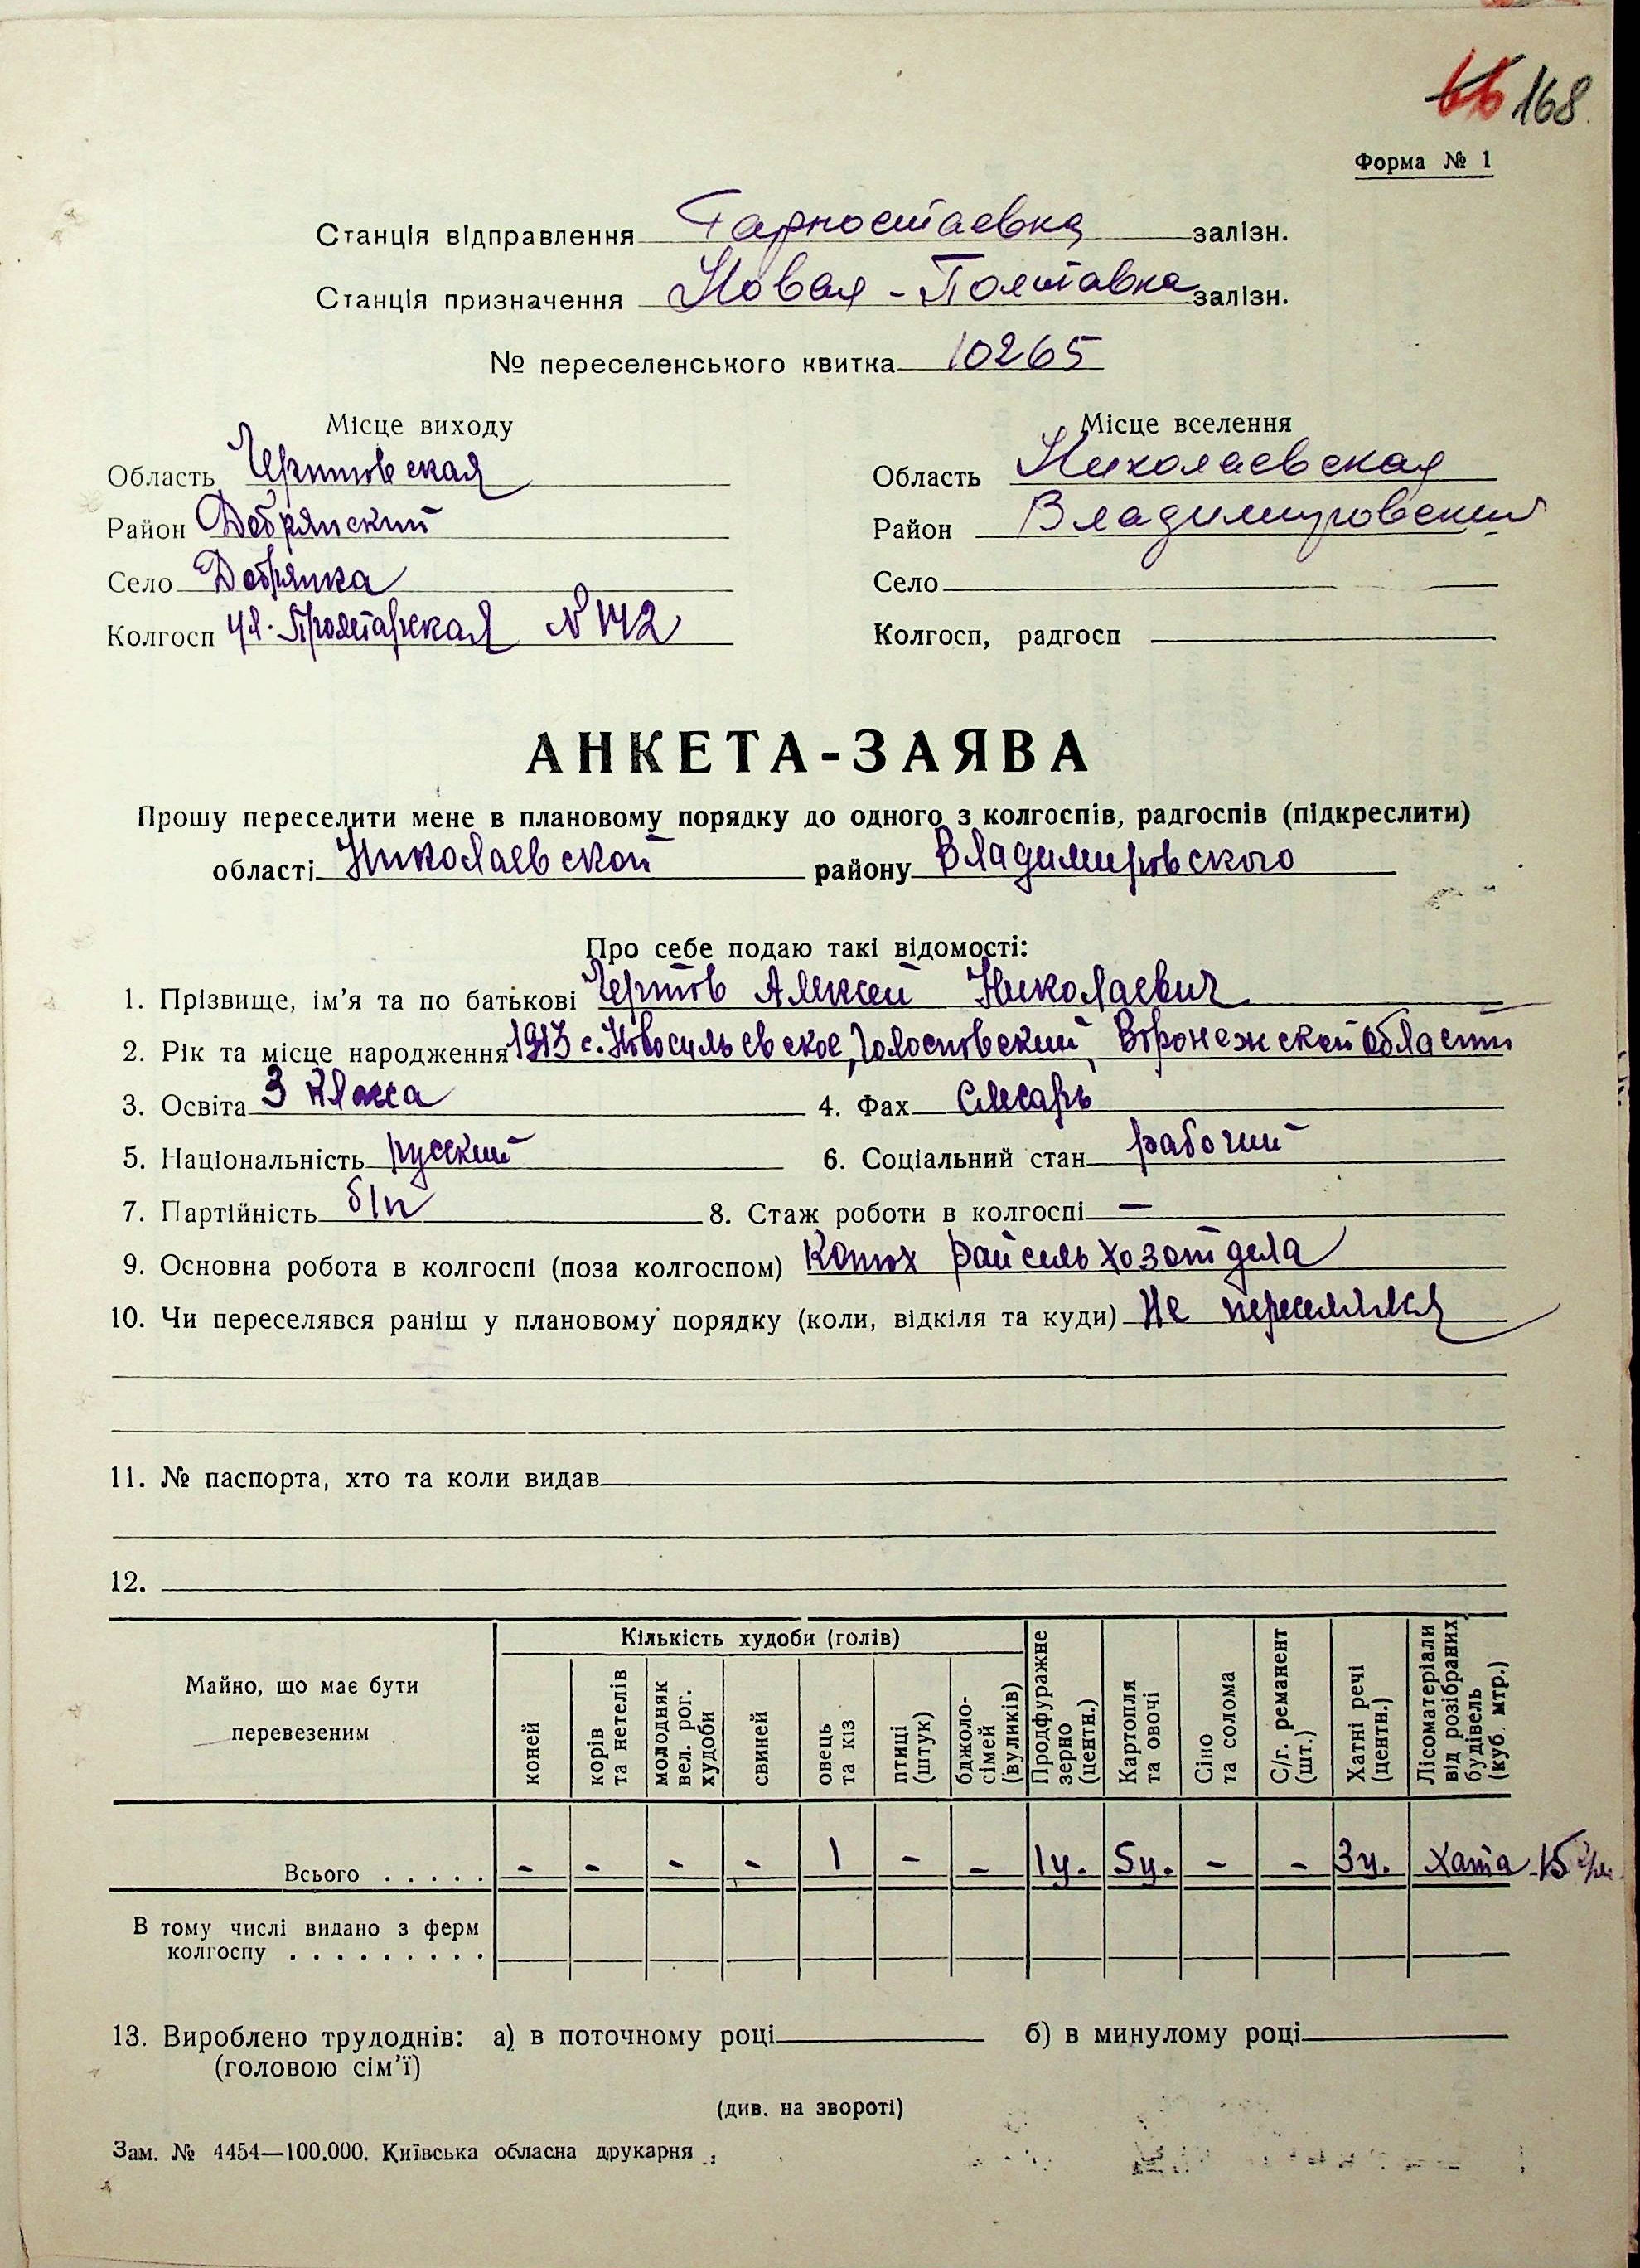 66 168.
Форма № 1
Станція відправлення Гарностаевка залізн.
Станція призначення Новая-Полтавка залізн.
№ переселенського квитка 10265
Місце виходу Місце вселення
Область Черниговская Область Николаевская
Район Добрянский Район Владимировский
Село Добрянка Село
Колгосп ул. Пролетарская N 142 Колгосп, радгосп
АНКЕТА-ЗАЯВА
Прошу переселити мене в плановому порядку до одного з колгоспів, радгоспів (підкреслити)
області Николаевской району Владимировского
Про себе подаю такі відомості:
1. Прізвище, ім'я та по батькові Алексей Николаевич
2. Рік та місце народження 1913 с. Новосильевское, Воронежской области
3. Освіта 3 класса 4. Фах слесарь
5. Національність русский 6. Соціальний стан рабочий
7. Партійність б/п 8. Стаж роботи в колгоспі —
9. Основна робота в колгоспі (поза колгоспом) Конюх райсельхозотдела
10. Чи переселявся раніш у плановому порядку (коли, відкіля та куди) Не переселялся
11. № паспорта, хто та коли видав
12.
Майно, що має бути перевезеним
Кількість худоби (голів)
коней
корів та нетелів
молодняк вел. рог. худоби
свиней
овець та кіз
птиці (штук)
бджоло-сімей (вуликів)
Продфуражне зерно (центн.)
Картопля та овочі
Сіно та солома
С/г. реманент (шт.)
Хатні речі (центн.)
Лісоматеріали від розібраних будівель (куб. мтр.)
Всього . . . . . - - - - 1 - - 1ц. 5ц. - - 3ц. Хата 15
В тому числі видано з ферм
колгоспу . . . . . . . . .
13. Вироблено трудоднів: а) в поточному році б) в минулому році
(головою сім'ї)
(див. на звороті)
Зам. № 4454—100.000. Київська обласна друкарня